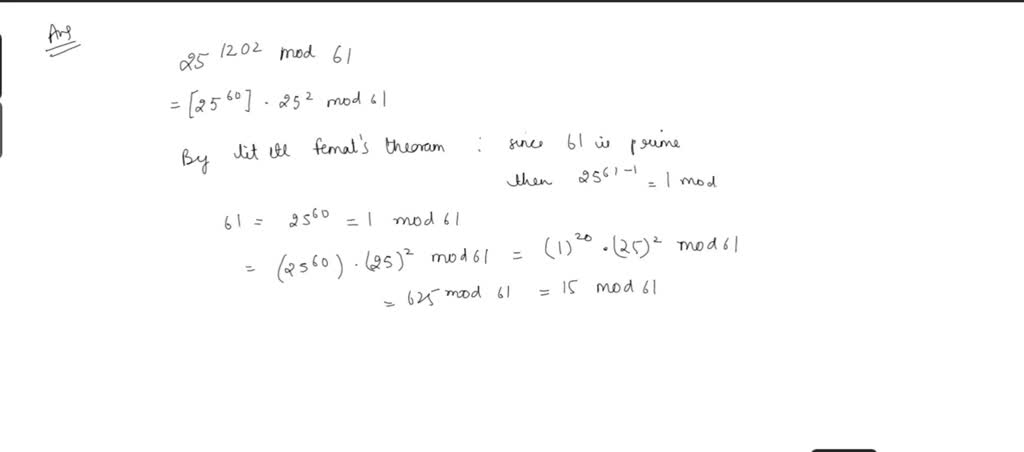 Ans
25^1202 mod 61
= [25^60] · 25² mod 61
By lit ttl femal's theoram : since 61 is prime
then 25^61-1 = 1 mod
61 = 25^60 = 1 mod 61
= (25^60) · (25)² mod 61 = (1)^20 · (25)² mod 61
= 625 mod 61 = 15 mod 61